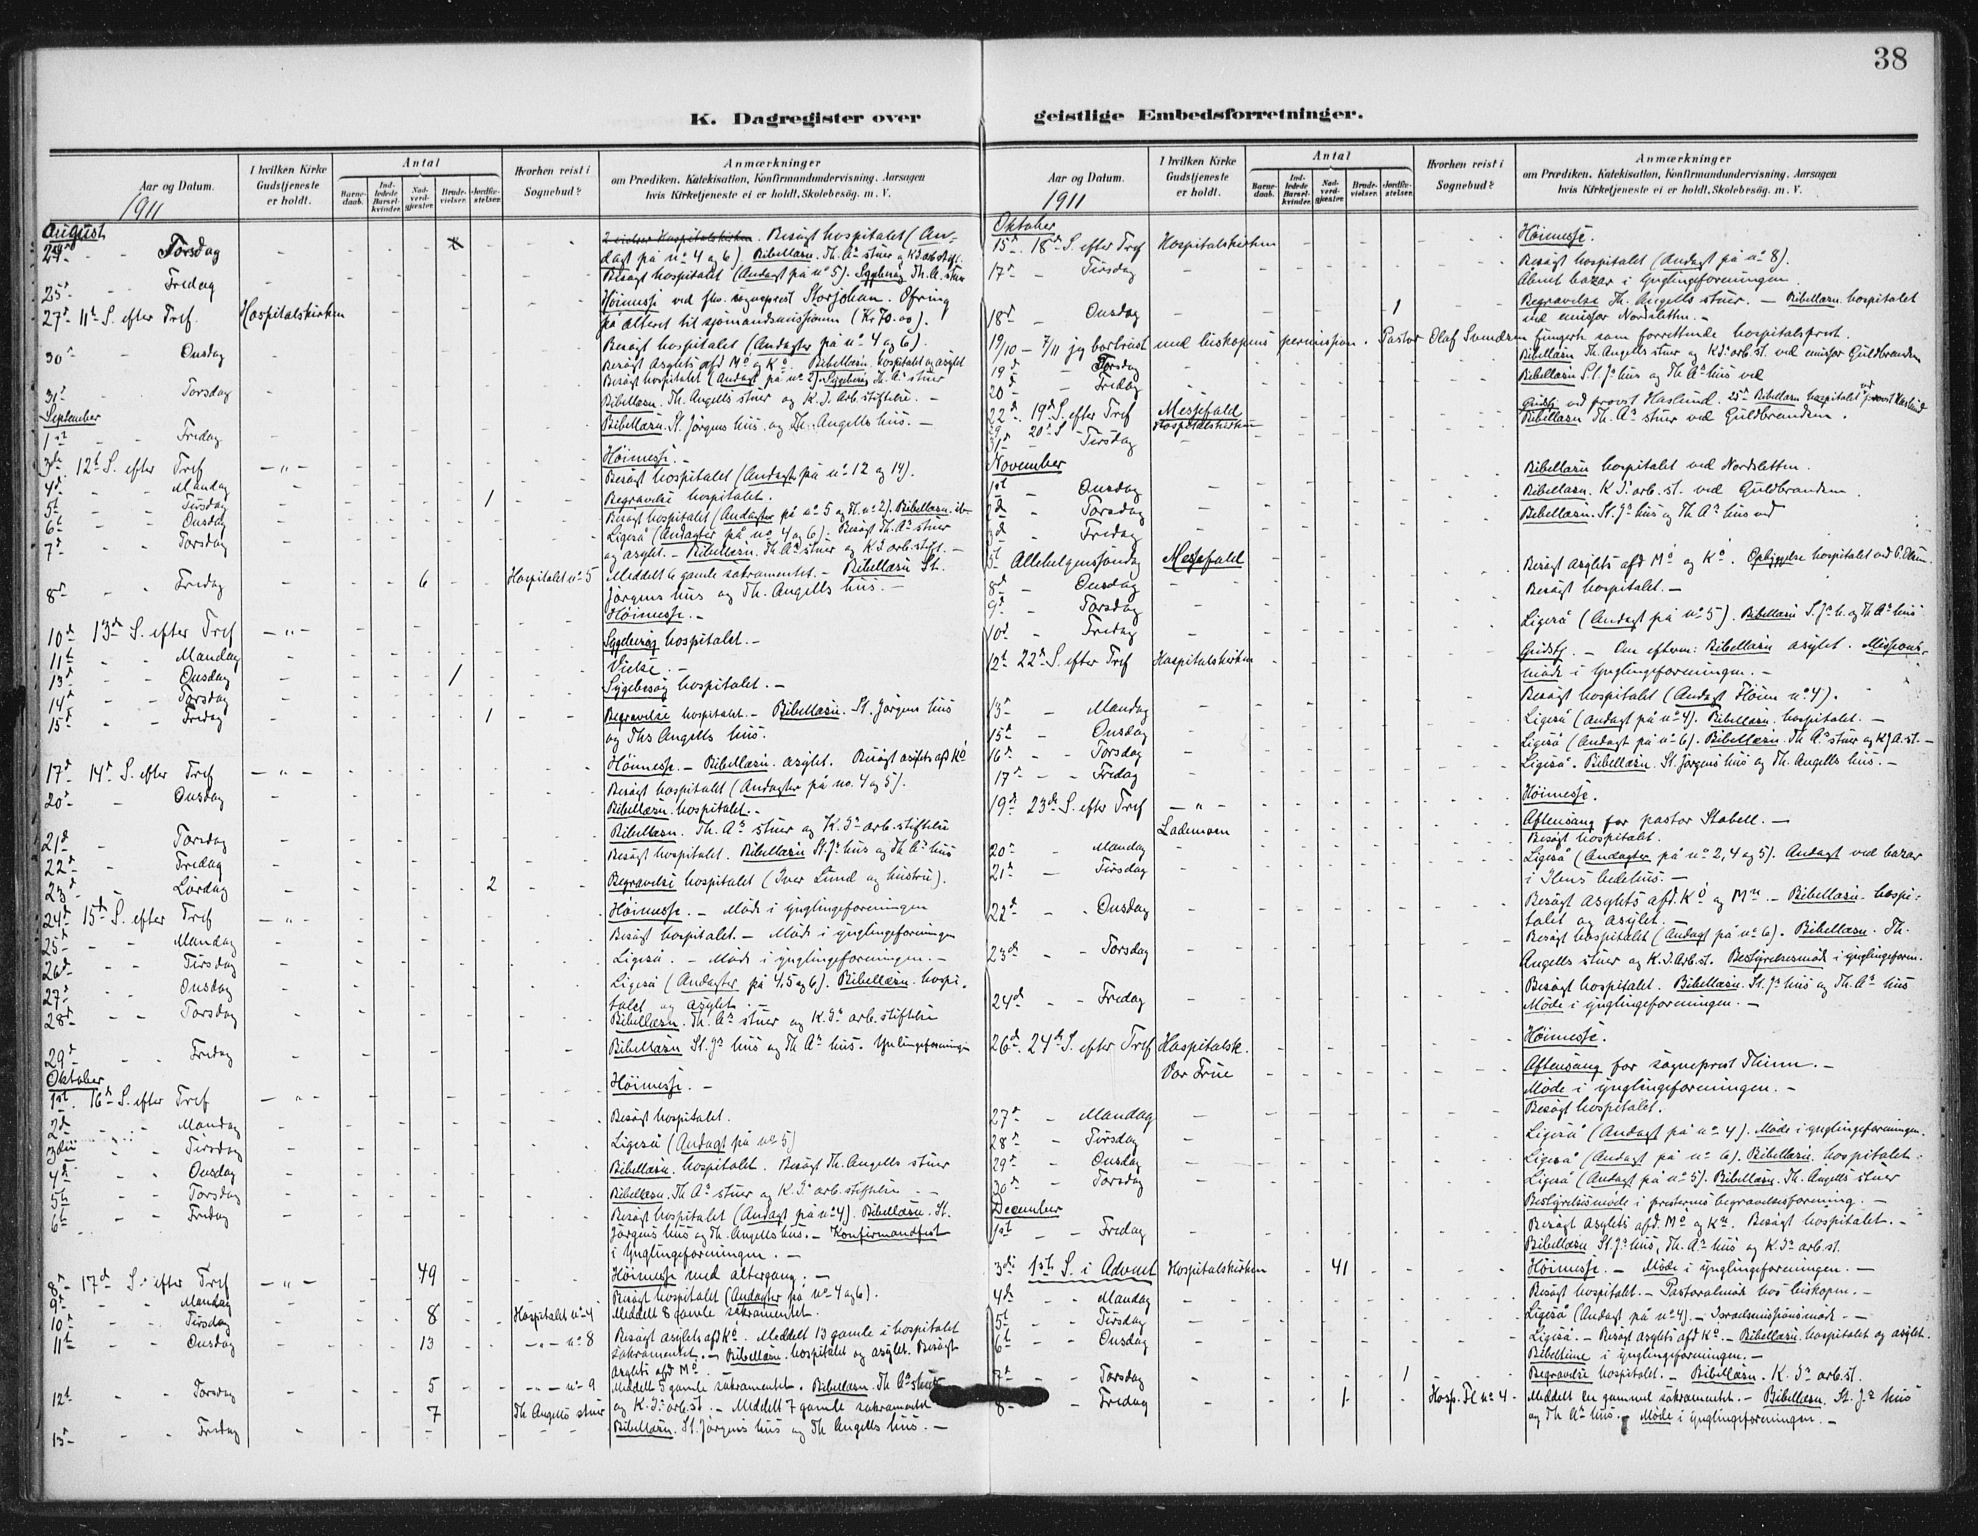 38
K. Dagregister over geistlige Embedsforretninger.
Aar og Datum.
1911
I hvilken Kirke Gudstjeneste er holdt.
Antal
Barnedaab.
Indledede Barselkvinder.
Nadverdgjæster.
Brudevielser.
Jordfæstelser.
Hvorhen reist i Sognebud?
Anmærkninger
om Prædiken, Katekisation, Konfirmandundervisning, Aarsagen
hvis Kirketjeneste ei er holdt, Skolebesög, m. V.
August
24de Torsdag Besögt hospitalet (An-
dagt på no 4 og 6). Bibellæsn. Th. As stuer
25d Fredag Besögt hospitalet (Andagt på no 5). Sygebesög Th. A. stuer
27d 11te S. efter Tref. Hospitalskirken Höimesse ved sogneprest Storjohan. Ofring
på alteret til sjömandsmissionen (Kr 70.00).
30d Onsdag Besögt hospitalet (Andagter på no 4 og 6).
Besögt asylets afd Mo og Ko. Bibellæsn. hospitalet og asylet
31te Torsdag Besögt hospitalet (Andagt på no 2). Sygebesög Th. As stuer
Bibellæsn. Th. Angells stuer og K. J. Arb. stiftelse. -
September
1st Fredag Bibellæsn. St. Jörgens hus og Th. Angells hus. -
3de 12te S. efter Tref - " - Höimesse. -
4de Mandag Besögt hospitalet (Andagt på no 12 og 14).
5te Tirsdag 1 Begravelse hospitalet.
6te Onsdag Besögt hospitalet (Andagter på no 5 og no 2). Bibellæsn.
7de Torsdag Ligeså (Andagter på no 4 og 6). Besögt Th. As stuer
og asylet. - Bibellæsn. Th. As stuer og K J arb. stift. -
8de Fredag 6 Hospitalet no 5 Meddelt 6 gamle sakramentet. - Bibellæsn St.
Jörgens hus og Th. Angells hus. -
10de 13de S. efter Tref - " - Höimesse. -
11te Mandag Sygebesög hospitalet. -
13de Onsdag 1 Vielse. -
14de Torsdag Sygebesög hospitalet. -
15de Fredag 1 Begravelse hospitalet. - Bibellæsn. St. Jörgens hus
og Ths Angells hus.
17de 14de S. efter Tref - " - Höimesse. - Bibellæsn. asylet. Besögt asylets afd Ko
20de Onsdag Besögt hospitalet (Andagter på no. 4 og 5).
Bibellæsn. hospitalet. -
21de Torsdag Bibellæsn. Th. As stuer og K. Js arb. stiftelse
22de Fredag Besögt hospitalet. Bibellæsn St. Js hus og Th As hus
23de Lördag 2 Begravelse hospitalet (Iver Lund og hustru).
24de 15de S. efter Tref - " - Höimesse. - Möde i ynglingeforeningen
25de Mandag Besögt hospitalet. - Möde i ynglingeforeningen
26de Tirsdag Ligeså. - Möde i ynglingeforeningen. -
27de Onsdag Ligeså (Andagter på 4, 5 og 6). Bibellæsn. hospi-
talet og asylet. -
28de Torsdag Bibellæsn. Th. As stuer og K. Js arb. stiftelse
29de Fredag Bibellæsn St. Js hus og Th As hus. Ynglingeforeningen
Oktober
1st. 16de S. efter Tref - " - Höimesse. -
2de Mandag Besögt hospitalet.
3die Tirsdag Ligeså (Andagt på no 5)
4de Onsdag Bibellæsn. hospitalet. Besögt Th. Angells stuer
5te Torsdag Bibellæsn. Th As stuer og K. Js arb. stiftelse
6te Fredag Besögt hospitalet (Andagt på no 4). Bibellæsn. St.
Jörgens hus og Th. Angells hus. - Konfirmandfest
i Ynglingeforeningen. -
8de 17de S. efter Tref - " - 49 Höimesse med altergang. -
9de Mandag Besögt hospitalet (Andagter på no 4 og 6).
10de Tirsdag 8 Hospitalet no 4 Meddelt 8 gamle sakramentet.
11te Onsdag 13 - " - no 8 Besögt asylets afd Ko. Meddelt 13 gamle i hospitalet
sakramentet. - Bibellæsn. hospitalet og asylet. Besögt
asylets afd Mo.
12te Torsdag 5 - " - no 9 Meddelt 5 gamle sakramentet. Bibellæsn. Th As stuer
7 Th Angells stuer og K. Js arb. st. - Meddelt 7 gamle sakramentet
13de Fredag Bibellæsn. St. Jörgens hus og Th Angells hus. -
Aar og Datum.
1911
I hvilken Kirke Gudstjeneste er holdt.
Antal
Barnedaab.
Indledede Barselkvinder.
Nadverdgjæster.
Brudevielser.
Jordfæstelser.
Hvorhen reist i Sognebud?
Anmærkninger
om Prædiken, Katekisation, Konfirmandundervisning, Aarsagen
hvis Kirketjeneste ei er holdt, Skolebesög, m. V.
Oktober
15de 18de S. efter Tref Hospitalskirken Höimesse.
17de Tirsdag Besögt hospitalet (Andagt på no 8).
Åbnet bazar i Ynglingeforeningen
18de Onsdag 1 Begravelse Th. Angells stuer. - Bibellæsn. hospitalet
ved emissær Nordsletten. -
19/10 - 7/11 jeg bortreist med biskopens permission. Pastor Olaf Svendsen fungerte som forrettende hospitalsprest.
19de Torsdag Bibellæsn Th. Angells stuer og K Js arb. st. ved emissær Guldbrandsen
20de Fredag Bibellæsn St. Js hus og Th. As hus ved
22de 19de S. efter Tref Messefald Gudstj ved provst Haslund. 25de Bibellæsn hospitalet ved provst Haslund
29 20de S Hospitalskirken
31te Tirsdag Bibellæsn Th. As stuer ved Guldbrandsen.
November
1st Onsdag Bibellæsn hospitalet ved Nordsletten.
2de Torsdag Bibellæsn. K Js arb. st. ved Guldbrandsen.
3de Fredag Bibellæsn. St. Js hus og Th As hus ved
5te Allehelgenssöndag Messefald
8de Onsdag Besögt asylets afd Mo og Ko. Opbyggelse hospitalet ved O. Olsen
9de Torsdag Besögt hospitalet. -
10de Fredag Ligeså (Andagt på no 5). Bibellæsn S. Js h. og Th As hus
12te 22de S. efter Tref Hospitalskirken Gudstj. - Om efterm: Bibellæsn asylet. Missions-
möde i Ynglingeforeningen. -
13de Mandag Besögt hospitalet (Andagt Höim no 4).
15de Onsdag Ligeså (Andagt på no 4). Bibellæsn. hospitalet. -
16de Torsdag Ligeså (Andagt på no 6). Bibellæsn. Th As stuer og K J A. st. -
17de Fredag Ligeså. Bibellæsn. St. Jörgens hus og Th. Angells hus. -
19de 23de S. efter Tref - " - Höimesse.
Lademoen Aftensang for pastor Stabell. -
20de Mandag Besögt hospitalet.
21de Tirsdag Ligeså (Andagter på no 2, 4 og 5). Andagt ved bazar
i Ilens bedehus. -
22de Onsdag Besögt asylets afd. Ko og Mo. - Bibellæsn. hospi-
talet og asylet. -
23de Torsdag Besögt hospitalet (Andagt på no 6). Bibellæsn. Th.
Angells stuer og K. J. Arb. st. Bestyrelsesmöde i ynglingeforen.
24de Fredag Besögt hospitalet. Bibellæsn. St. Js hus og Th. As hus
Möde i ynglingeforeningen. -
26de. 24de S. efter Tref Hospitalsk. Höimesse.
Vor Frue Aftensang for sogneprest Thinn. -
Möde i ynglingeforeningen. -
27de Mandag Besögt hospitalet.
28de Tirsdag Ligeså (Andagt på no 4). Möde i ynglingeforeningen.
29de Onsdag Ligeså (Andagt på no 6). Bibellæsn. hospitalet.
30de Torsdag Ligeså (Andagt på no 5). Bibellæsn. Th. Angells stuer
Bestyrelsesmöde i presternes begravelsesforening. -
December
1st Fredag Besögt Asylets afd. Mo og Ko. Besögt hospitalet. -
Bibellæsn St. Js hus, Th. As hus og K. Js arb. st.
3de 1ste S. i Advent Hospitalskirken 41 Höimesse. - Möde i ynglingeforeningen. -
4de Mandag Besögt hospitalet. - Pastoralmöde hos biskopen. -
5te Tirsdag Ligeså (Andagt på no 4). - Israelsmissionsmöde. -
6te Onsdag Ligeså. - Besögt asylets afd Ko. - Bibellæsn. hospitalet og asylet.
Bibeltime i ynglingeforeningen. -
7de Torsdag 1 Begravelse hospitalet. - Bibellæsn. K. Js arb. st.
8de Fredag 1 Hosp. Fl no 4 Meddelt en gammel sakramentet. - Bibellæsn. St. Js hus
og Th As hus. Möde i ynglingeforeningen. -